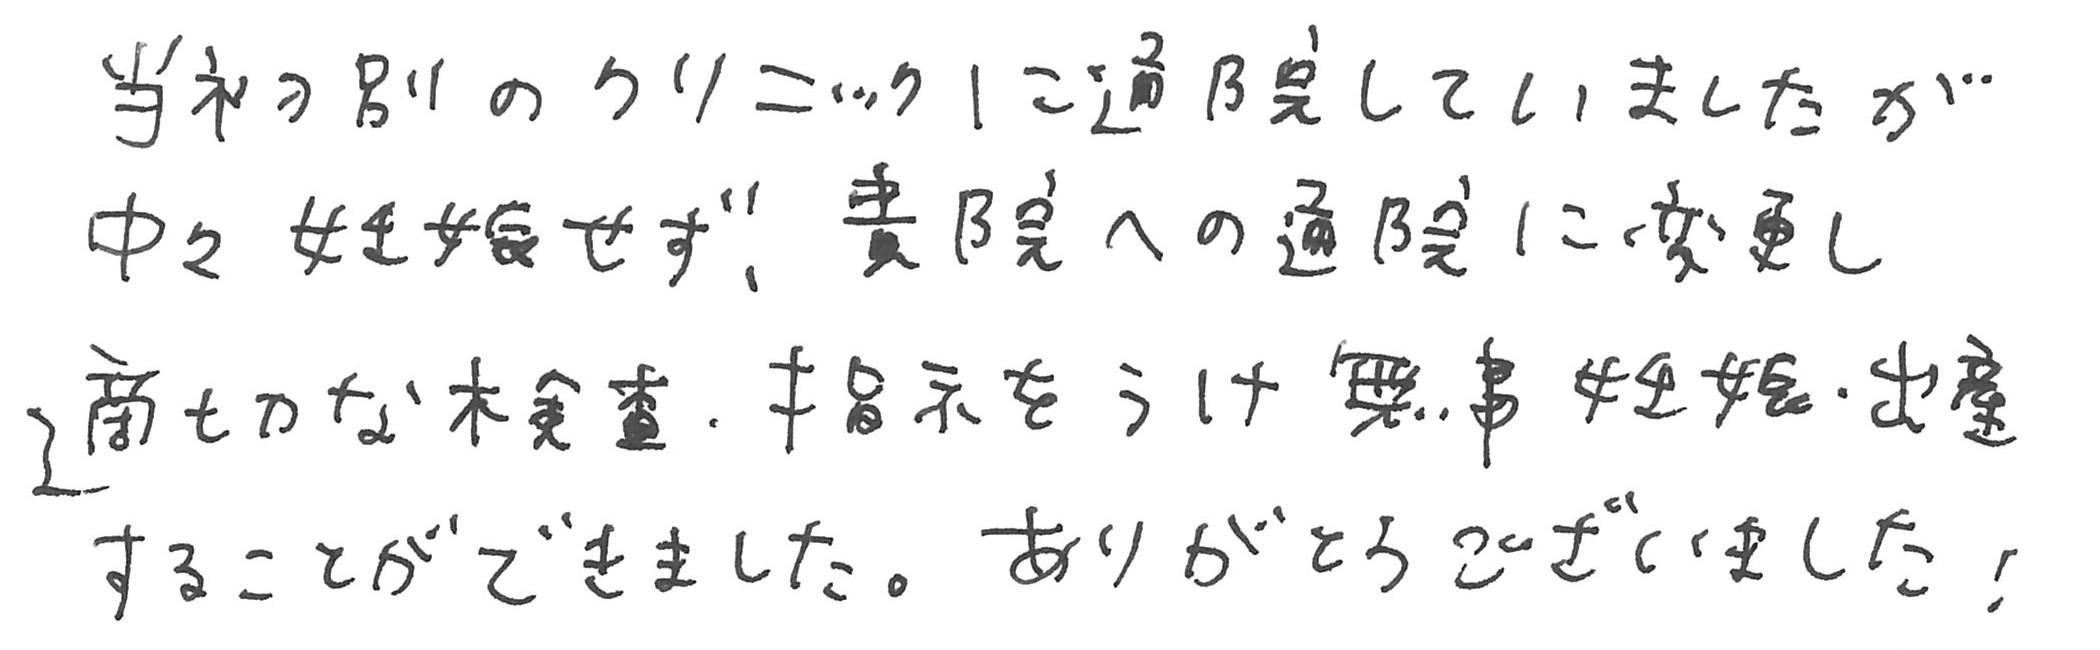 当初別のクリニックに通院していましたが
中々妊娠せず、貴院への通院に変更し
適切な検査・指示をうけ無事妊娠・出産
することができました。ありがとうございました!